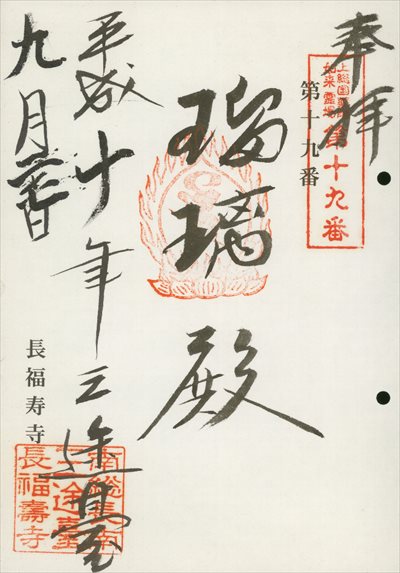 奉拝
上総国
如来霊場
第十九番
第十九番
瑠璃殿
平成十年
三途臺
九月
長福寿寺
三途臺
長福壽寺